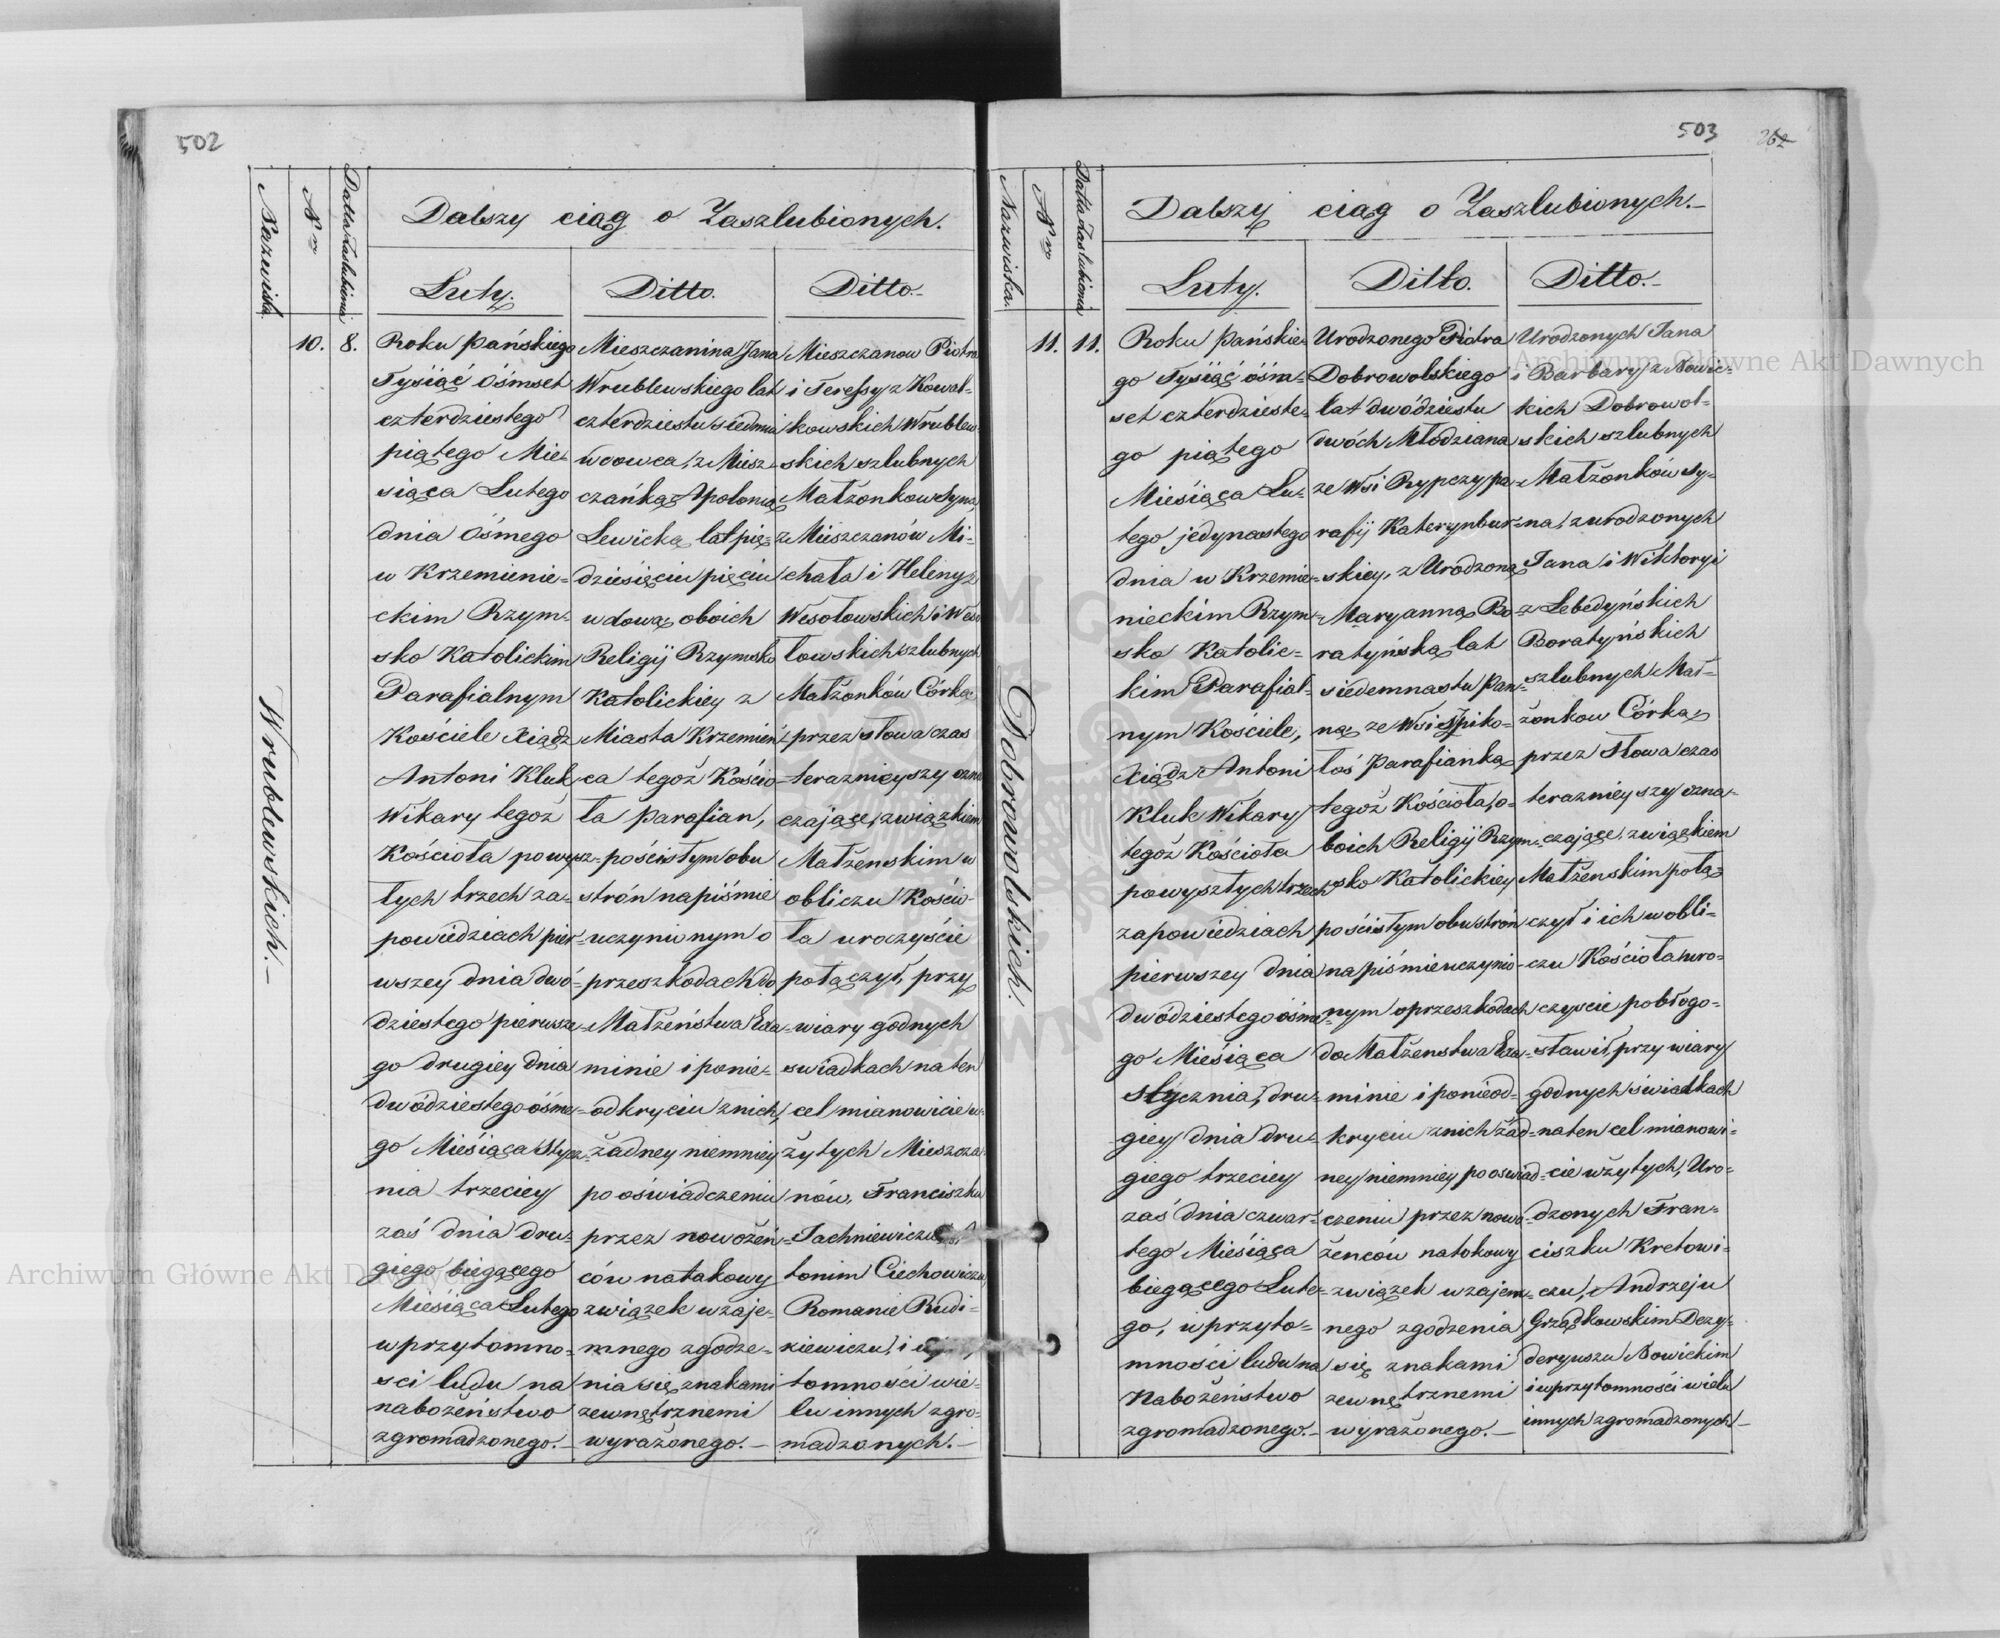 502
Nazwiska.
Nro
Datta Zaslubienia
Dalszy ciąg o Zaszlubionych.
Luty.
Ditto.
Ditto.-
10.
8.
Wrublewskich.-
Roku Pańskiego
Tysiąć Ośmset
czterdziestego
piątego Mie-
siąca Lutego
dnia Ośmego
w Krzemienie-
ckim Rzym-
sko Katolickim
Parafialnym
Kościele Xiądz
Antoni Kluk
Wikary tegoż
Kościoła powysz-
łych trzech za-
powiedziach pier-
wszey dnia dwó-
dziestego pierwsze-
go drugiey dnia
dwódziestego ósme-
go Miesiąca Stycz-
nia trzeciey
zaś dnia dru-
giego biegącego
Miesiąca Lutego
w przytomno-
sci ludu na
nabożeństwo
zgromadzonego.-
Mieszczanina Jana
Wrublewskiego lat
czterdziestu siedmiu
wdowca, z Miesz-
czańką Apolonią
Lewicką lat pię-
dziesięciu pięciu
wdową oboich
Religij Rzymsko
Katolickiey z
Miasta Krzemień-
ca tegoż Kościo-
ła Parafian,
pościsłym obu
strón na piśmie
uczynionym o
przeszkodach do
Matżeństwa Exa-
minie i ponie-
odkryciu znich
żadney niemniey
po oświadczeniu
przez nowożeń-
ców na takowy
związek wzaje-
mnego zgodze-
nia się znakami
zewnętrznemi
wyrażonego.-
Mieszczanow Piotra
i Teressy z Kowal-
kowskich Wrublew-
skich szlubnych
Matżonkow Syna,
z Mieszczanów Mi-
chała i Heleny z
Wesołowskich i Weso
łowskich szlubnych
Matżonków Córką
przez słowa czas
teraznieyszy ozna
czające, związkiem
Matżenskim w
obliczu Kościo-
ła uroczyście
połączył, przy
wiary godnych
swiadkach na ten
cel mianowicie u-
żytych Mieszcza-
nów, Franciszku
Jachniewiczu
tonim Ciechowiczu,
Romanie Rudi-
kiewiczu, i
tomności wie-
lu innych zgro-
madzonych.-
503
262
Nazwiska.
Nro
Datta Zaslubienia
Dalszy ciąg o Zaszlubionych.-
Luty.
Ditto.
Ditto.-
11.
11.
Dobrowolskich.
Roku Pańskie-
go Tysiąc ośm-
set czterdzieste-
go piątego
Miesiąca Lu-
tego jedynastego
dnia w Krzemie-
nieckim Rzym-
sko Katolic-
kim Parafial-
nym Kościele,
Xiądz Antoni
Kluk Wikary
tegoż Kościoła
powyszłych trzech
zapowiedziach
pierwszey dnia
dwódziestego ósme-
go Miesiąca
stycznia, dru-
giey dnia dru-
giego trzeciey
zaś dnia czwar-
tego Miesiąca
biegącego Lute-
go, w przyto-
mności ludu na
Nabożeństwo
zgromadzonego.-
Urodzonego Piotra
Dobrowolskiego
lat dwódziestu
dwóch Młodziana
ze Wsi Rypczy pa-
rafij Katerynbur-
skiey, z Urodzoną
Maryanną Bo-
ratyńską lat
siedemnastu Pan-
ną ze Wsi Szpiko-
łoś Parafianką
tegoż Kościoła, o-
boich Religij Rzym-
sko Katolickiey
pościsłym obu strón
na piśmie uczynio-
nym o przeszkodach
do Matżenstwa Exa-
minie i ponieod-
kryciu znich żad-
ney niemniey po oswiad-
czeniu przez nowo-
żenców na tokowy
związek wzajem-
nego zgodzenia
się znakami
zewnętrznemi
wyrażonego.-
Urodzonych Jana
i Barbary z Nowic-
kich Dobrowol-
skich szlubnych
Matżonkow Sy-
na, z urodzonych
Jana i Wiktoryi
z Lebedyńskich
Boratyńskich
szlubnych Mał-
żonkow Córką,
przez Słowa czas
teraznieyszy ozna-
czające, związkiem
Matżenskim połą-
czył i ich w obli-
czu Kościoła uro-
czyscie pobłogo-
sławił, przy wiary
godnych świadkach
na ten cel mianowi-
cie użytych, Uro-
dzonych Fran-
ciszku Kretowi-
czu, Andrzeju
Grządkowskim Dezy-
deryuszu Nowickim
i wprzytomności wielu
innych zgromadzonych-
Archiwum Główne Akt Dawnych
Archiwum Główne Akt Dawnych